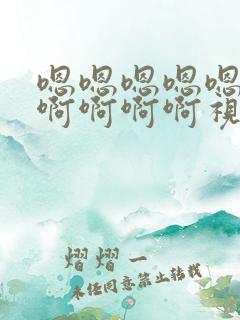 嗯嗯嗯嗯嗯
啊啊啊啊視
熠熠一
未经同意禁止转载